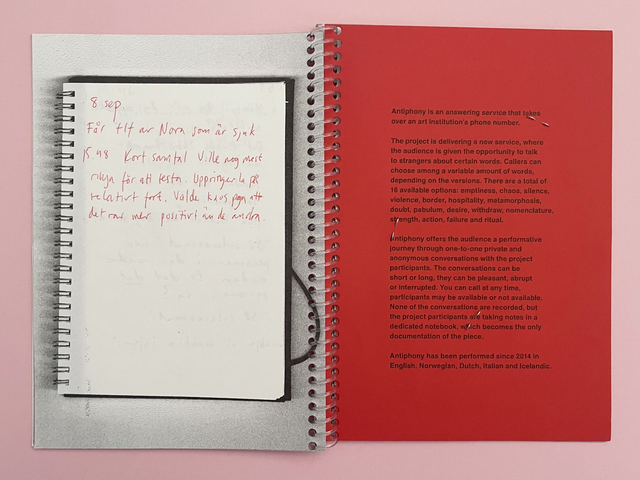 8 sep.
Får tlf av Nora som är sjuk
15.48 Kort samtal Ville nog mest
ringa för att testa. Uppringer la på
relativt fort. Valde kaos pga att
det var mer positivt än de andra.
Antiphony is an answering service that takes
over an art institution's phone number.
The project is delivering a new service, where
the audience is given the opportunity to talk
to strangers about certain words. Callers can
choose among a variable amount of words,
depending on the versions. There are a total of
16 available options: emptiness, chaos, silence,
violence, border, hospitality, metamorphosis,
doubt, pabulum, desire, withdraw, nomenclature,
strength, action, failure and ritual.
Antiphony offers the audience a performative
journey through one-to-one private and
anonymous conversations with the project
participants. The conversations can be
short or long, they can be pleasant, abrupt
or interrupted. You can call at any time,
participants may be available or not available.
None of the conversations are recorded, but
the project participants are taking notes in a
dedicated notebook, which becomes the only
documentation of the piece.
Antiphony has been performed since 2014 in
English, Norwegian, Dutch, Italian and Icelandic.